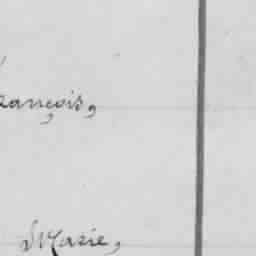 François,
Marie,